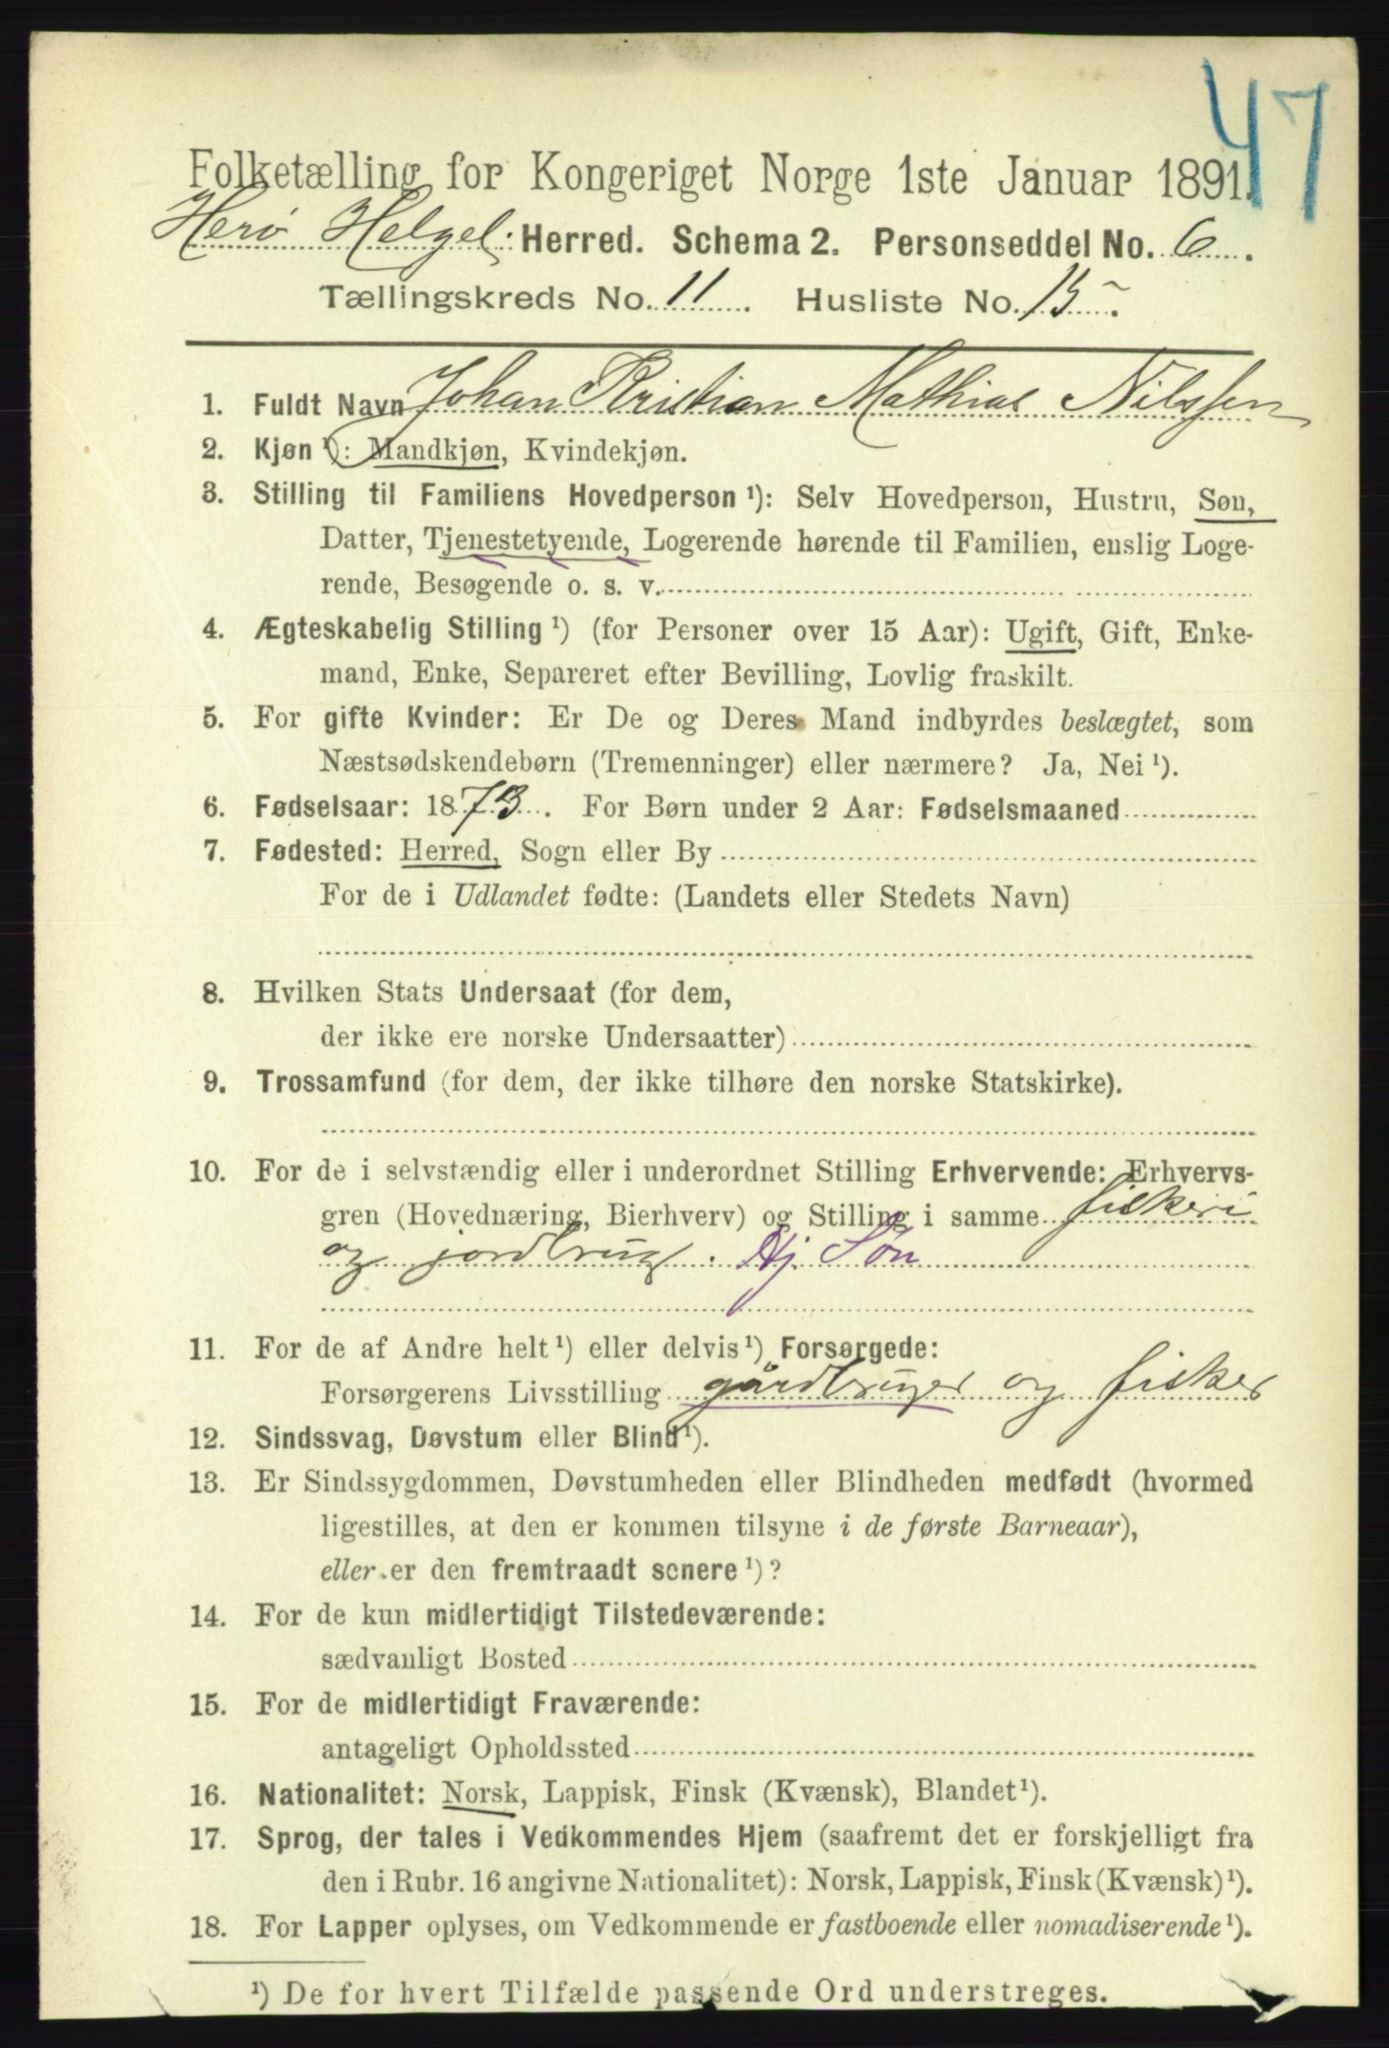 47
Folketælling for Kongeriget Norge 1ste Januar 1891.
Herø Helgel. Herred. Schema 2. Personseddel No. 6.
Tællingskreds No. 11 Husliste No. 15.
1. Fuldt Navn Johan Kristian Mathias Nilssen
2. Kjøn ¹): Mandkjøn, Kvindekjøn.
3. Stilling til Familiens Hovedperson ¹): Selv Hovedperson, Hustru, Søn,
Datter, Tjenestetyende, Logerende hørende til Familien, enslig Loge-
rende, Besøgende o. s. v.
4. Ægteskabelig Stilling ¹) (for Personer over 15 Aar): Ugift, Gift, Enke-
mand, Enke, Separeret efter Bevilling, Lovlig fraskilt.
5. For gifte Kvinder: Er De og Deres Mand indbyrdes beslægtet, som
Næstsødskendebørn (Tremenninger) eller nærmere? Ja, Nei ¹).
6. Fødselsaar: 1873. For Børn under 2 Aar: Fødselsmaaned
7. Fødested: Herred, Sogn eller By
For de i Udlandet fødte: (Landets eller Stedets Navn)
8. Hvilken Stats Undersaat (for dem,
der ikke ere norske Undersaatter)
9. Trossamfund (for dem, der ikke tilhøre den norske Statskirke).
10. For de i selvstændig eller i underordnet Stilling Erhvervende: Erhvervs-
gren (Hovednæring, Bierhverv) og Stilling i samme fiskeri
og jordbrug. Hj Søn
11. For de af Andre helt ¹) eller delvis ¹) Forsørgede:
Forsørgerens Livsstilling gårdbruger og fisker
12. Sindssvag, Døvstum eller Blind ¹).
13. Er Sindssygdommen, Døvstumheden eller Blindheden medfødt (hvormed
ligestilles, at den er kommen tilsyne i de første Barneaar),
eller er den fremtraadt senere ¹)?
14. For de kun midlertidigt Tilstedeværende:
sædvanligt Bosted
15. For de midlertidigt Fraværende:
antageligt Opholdssted
16. Nationalitet: Norsk, Lappisk, Finsk (Kvænsk), Blandet ¹).
17. Sprog, der tales i Vedkommendes Hjem (saafremt det er forskjelligt fra
den i Rubr. 16 angivne Nationalitet): Norsk, Lappisk, Finsk (Kvænsk) ¹).
18. For Lapper oplyses, om Vedkommende er fastboende eller nomadiserende ¹).
¹) De for hvert Tilfælde passende Ord understreges.